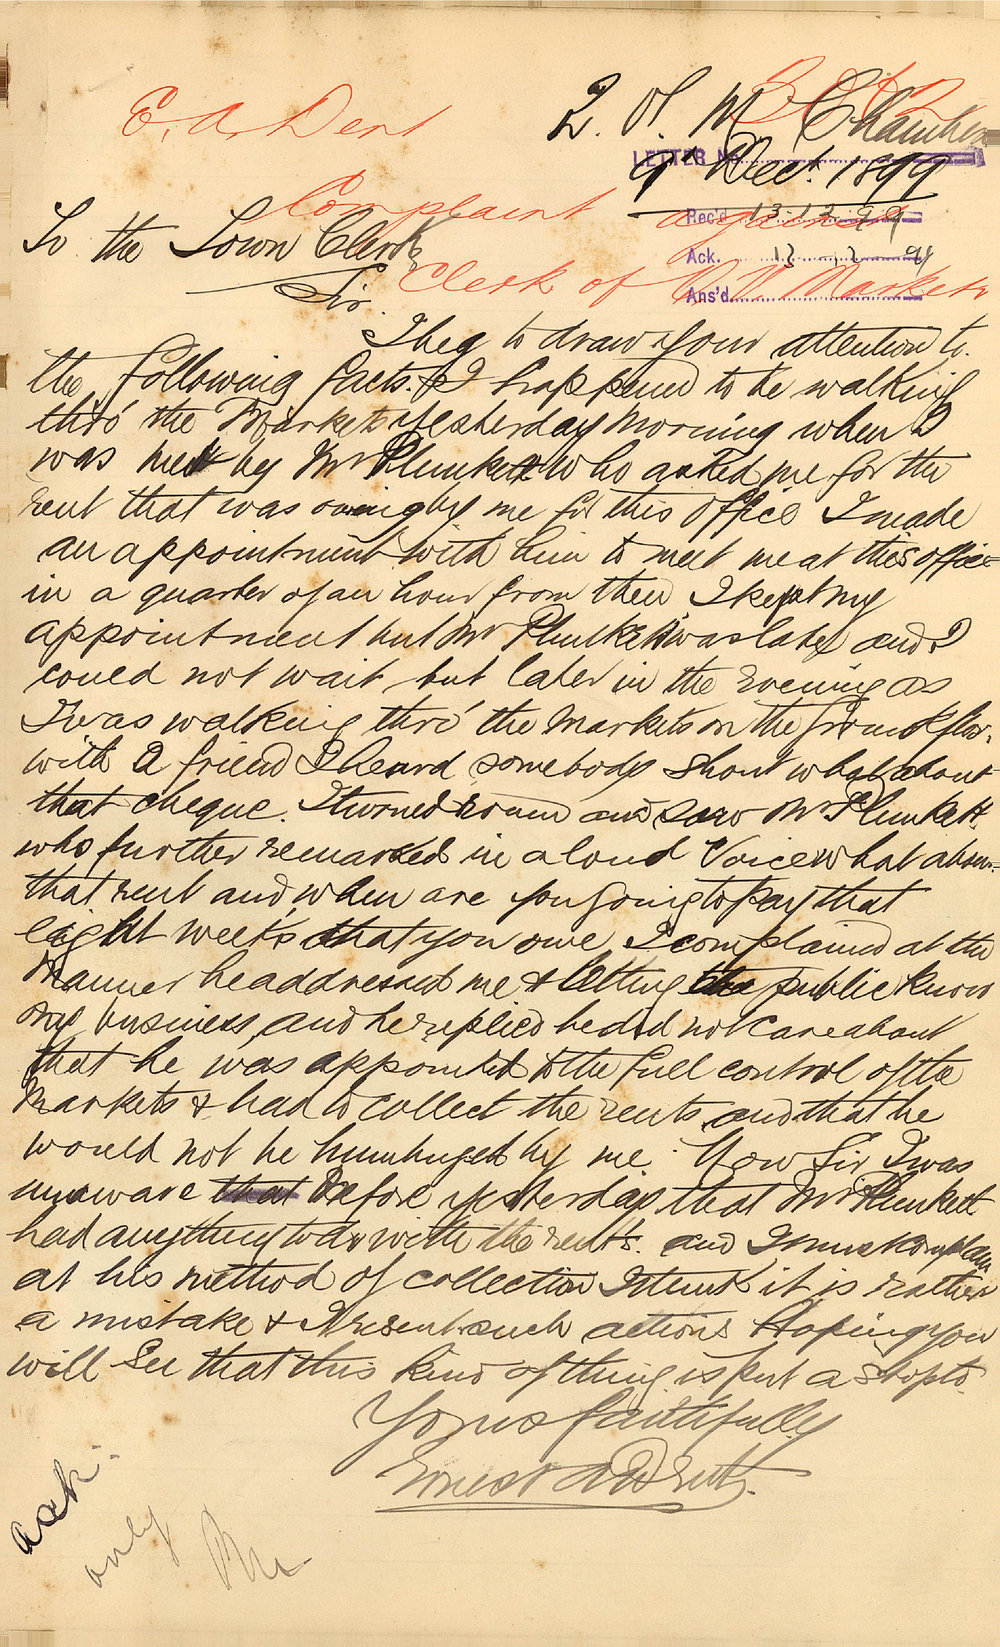 E. A. Dent
Q. V. M. Chambers
LETTER No.
9th Dect. 1899
Complaint against
Rec'd 13.12.99
To the Town Clerk
Ack.
Sir.
Clerk of Q V Markets
Ans'd
I beg to draw your attention to
the following facts. I happened to be walking
thro' the Markets yesterday morning when I
was met by Mr Plunkett who asked me for the
rent that was owing by me for this office I made
an appointment with him to meet me at this office
in a quarter of an hour from then, I kept my
appointment but Mr Plunkett was late and I
could not wait but later in the Evening as
I was walking thro' the Markets on the Ground floor
with a friend I heard somebody shout what about
that cheque. I turned round and saw Mr Plunkett
who further remarked in a loud Voice what about
that rent and when are you going to pay that
eight weeks that you owe, I complained at the
Manner he addressed me & letting the public know
my business, and he replied he did not care about
that he was appointed to the full control of the
Markets & had to collect the rents and that he
would not be humbuged by me. Now Sir I was
unaware that Before yesterday that Mr Plunkett
had anything to do with the rents. and I must complain
at his method of collection I think it is rather
a mistake & I resent such actions Hoping you
will See that this kind of thing is put a stop to.
Yours faithfully
Ernest
ack.
only